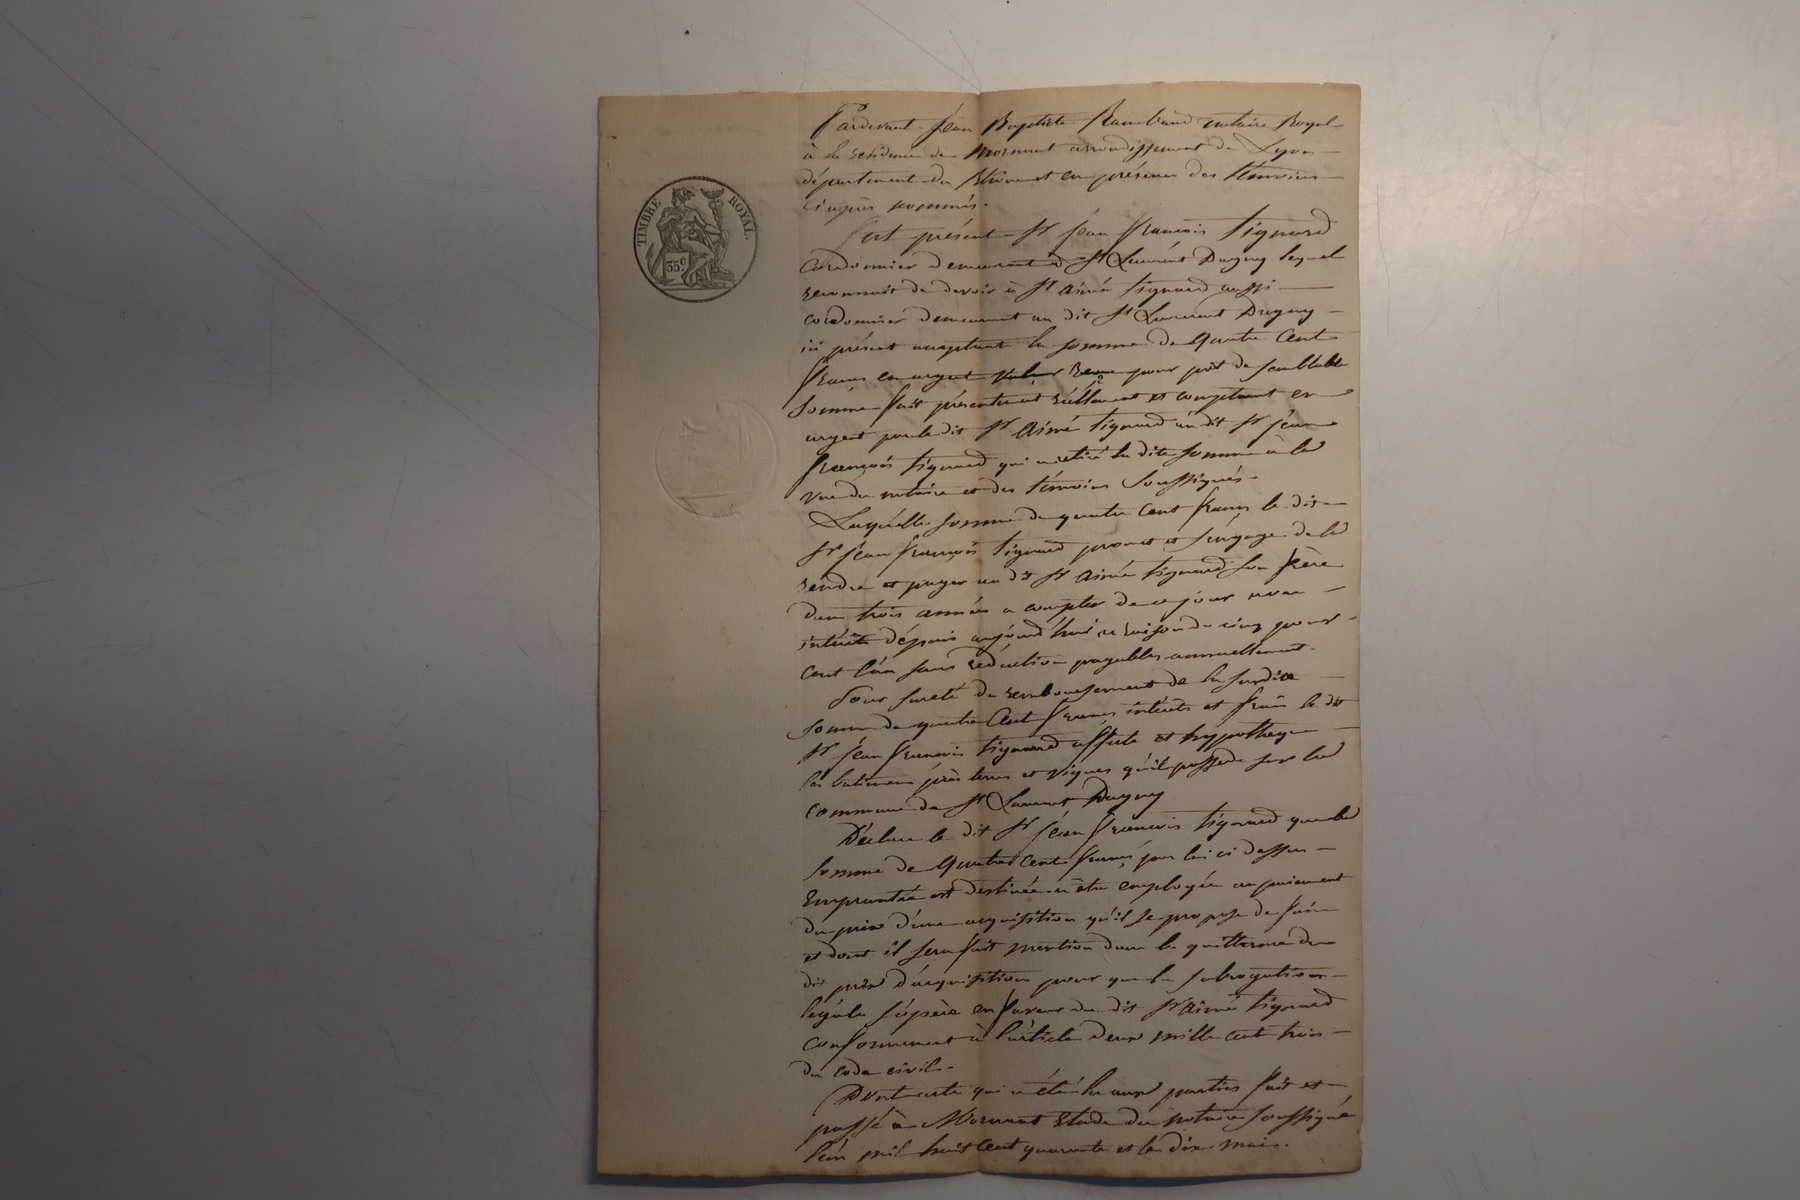 TIMBRE ROYAL.
35 c.
Pardevant Jéan Baptiste Rambaud notaire Royal
à la résidence de Mornant arrondissement de Lyon
département du Rhône et en présence des témoins
ci après nommés.
Fut présent Sr Jéan François Signard
cordonnier demeurant à St Laurent Dagny lequel
reconnait de devoir à Sr Aimé Signard aussi
cordonnier demeurant au dit St Laurent Dagny
ici présent acceptant la somme de Quatre Cent
francs en argent pour prêt de semblable
somme fait présentement réellement et comptant en
argent par le dit Sr Aimé Signard au dit Sr Jéan
François Signard qui a retiré la dite somme à la
vue du notaire et des témoins soussignés.
Laquelle somme de quatre cent francs le dit
Sr Jéan François Signard promet et s'engage de la
rendre et payer au dt Sr Aimé Signard son frère
dans trois années a compter de ce jour avec
intérêts dépuis aujourd'hui a raison de cinq pour
cent l'an sans réduction payables annuellement.
Pour sureté du remboursement de la susdite
somme de quatre Cent francs intérêts et frais le dit
Sr Jéan François Signard affecte et hyppotheque
les batimens près terres et vignes qu'il possede sur la
commune de St Laurent Dagny
Déclare le dit Sr Jéan François Signard que la
somme de Quatre Cent francs par lui ci dessus
empruntée est destinée à être employée au paiement
du prix d'une acquisition qu'il se propose de faire
et dont il sera fait mention dans la quittance du
dit prix d'acquisition pour que la subrogation
légale s'opère en faveur du dit Sr Aimé Signard
conformement à l'article deux mille cent trois
du code civil.
Dont acte qui a été lu aux parties fait et
passé à Mornant Etude du notaire soussigné
l'an mil huit cent quarante et le dix mai.